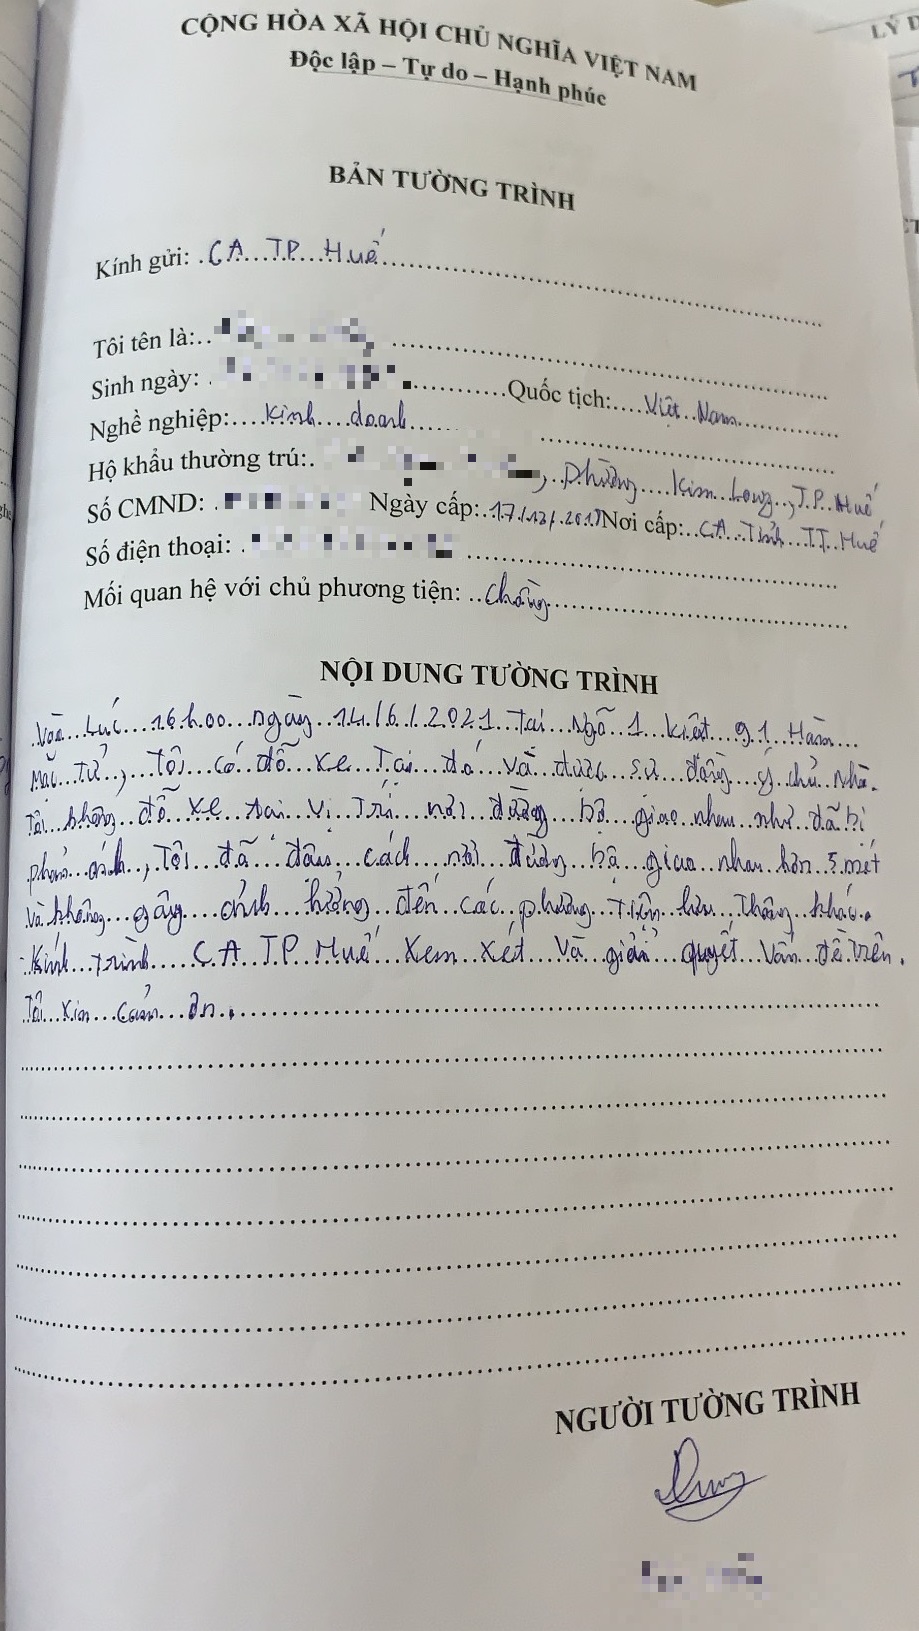 CỘNG HÒA XÃ HỘI CHỦ NGHĨA VIỆT NAM
Độc lập – Tự do – Hạnh phúc
LÝ D
BẢN TƯỜNG TRÌNH
Kính gửi: CA TP Huế
Tôi tên là:
Sinh ngày: Quốc tịch: Việt Nam
Nghề nghiệp: Kinh doanh
Hộ khẩu thường trú: , phường Kim Long, TP Huế
Số CMND: Ngày cấp: Nơi cấp: CA Tỉnh TT Huế
Số điện thoại:
Mối quan hệ với chủ phương tiện: Chồng
NỘI DUNG TƯỜNG TRÌNH
Vào Lúc 16h00 ngày 14/6/2021 Tại Ngõ 1 kiệt 91 Hàm
Mặc Tử, Tôi có đỗ xe Tại đó và được sự đồng ý chủ nhà.
Tôi không đỗ xe tại vị Trí nơi đường bộ giao nhau như đã bị
phản ánh, Tôi đã đậu cách nơi đường bộ giao nhau hơn 5 mét
và không gây ảnh hưởng đến các phương Tiện lưu Thông khác.
Kính trình CA TP Huế Xem xét và giải quyết vấn đề trên.
Tôi xin cảm ơn.
NGƯỜI TƯỜNG TRÌNH